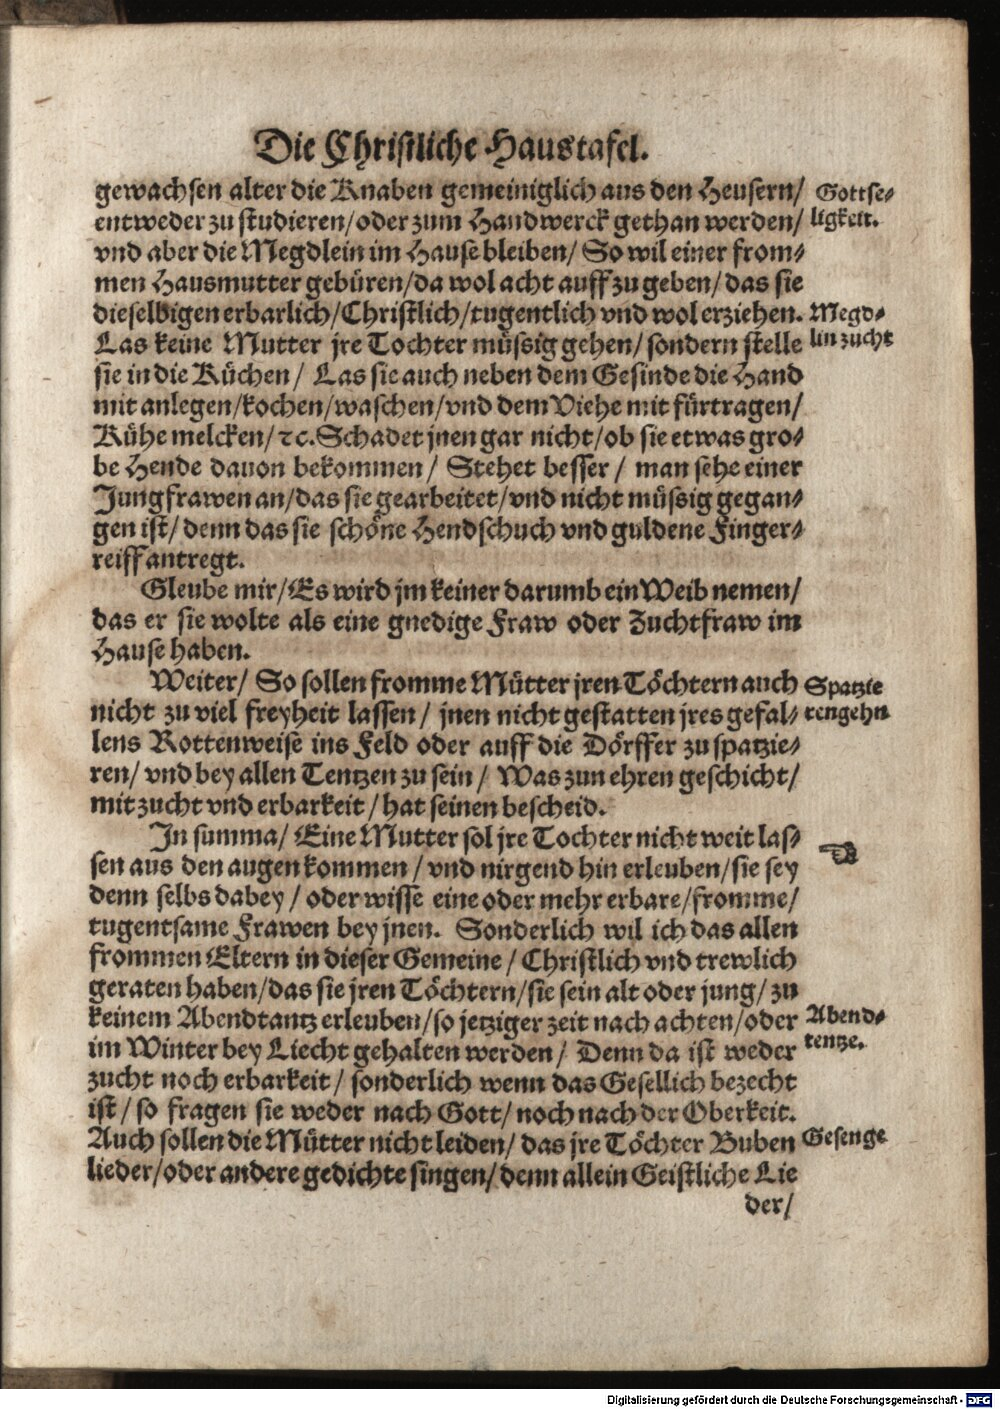 Die Christliche Haustafel.
gewachsen alter die Knaben gemeiniglich aus den Heusern/
entweder zu studieren/oder zum Handwerck gethan werden/
vnd aber die Megdlein im Hause bleiben/ So wil einer from-
men Hausmutter gebüren/da wol acht auff zu geben/das sie
dieselbigen erbarlich/Christlich/tugentlich vnd wol erziehen.
Las keine Mutter jre Tochter müssig gehen/sondern stelle
sie in die Küchen/ Las sie auch neben dem Gesinde die Hand
mit anlegen/kochen/waschen/vnd dem Viehe mit fürtragen/
Kühe melcken/ꝛc. Schadet jnen gar nicht/ob sie etwas gro-
be Hende dauon bekommen/ Stehet besser/ man sehe einer
Jungfrawen an/das sie gearbeitet/vnd nicht müssig gegan-
gen ist/denn das sie schöne Hendschuch vnd guldene Finger-
reiff antregt.
Gleube mir/Es wird jm keiner darumb ein Weib nemen/
das er sie wolte als eine gnedige Fraw oder Zuchtfraw im
Hause haben.
Weiter/ So sollen fromme Mütter jren Töchtern auch
nicht zu viel freyheit lassen/ jnen nicht gestatten jres gefal-
lens Rottenweise ins Feld oder auff die Dörffer zu spatzie-
ren/vnd bey allen Tentzen zu sein/ Was zun ehren geschicht/
mit zucht vnd erbarkeit/hat seinen bescheid.
In summa/ Eine Mutter sol jre Tochter nicht weit las-
sen aus den augen kommen/vnd nirgend hin erleuben/sie sey
denn selbs dabey/oder wisse eine oder mehr erbare/fromme/
tugentsame Frawen bey jnen. Sonderlich wil ich das allen
frommen Eltern in dieser Gemeine/Christlich vnd trewlich
geraten haben/das sie jren Töchtern/sie sein alt oder jung/zu
keinem Abendtantz erleuben/so jetziger zeit nach achten/oder
im Winter bey Liecht gehalten werden/ Denn da ist weder
zucht noch erbarkeit/sonderlich wenn das Gesellich bezecht
ist/so fragen sie weder nach Gott/noch nach der Oberkeit.
Auch sollen die Mütter nicht leiden/das jre Töchter Buben
lieder/oder andere gedichte singen/denn allein Geistliche Lie
der/
Gottse-
ligkeit.
Megd-
lin zucht
Spatzie
rengehn
☜
Abend-
tentze.
Gesenge
Digitalisierung gefördert durch die Deutsche Forschungsgemeinschaft - DFG